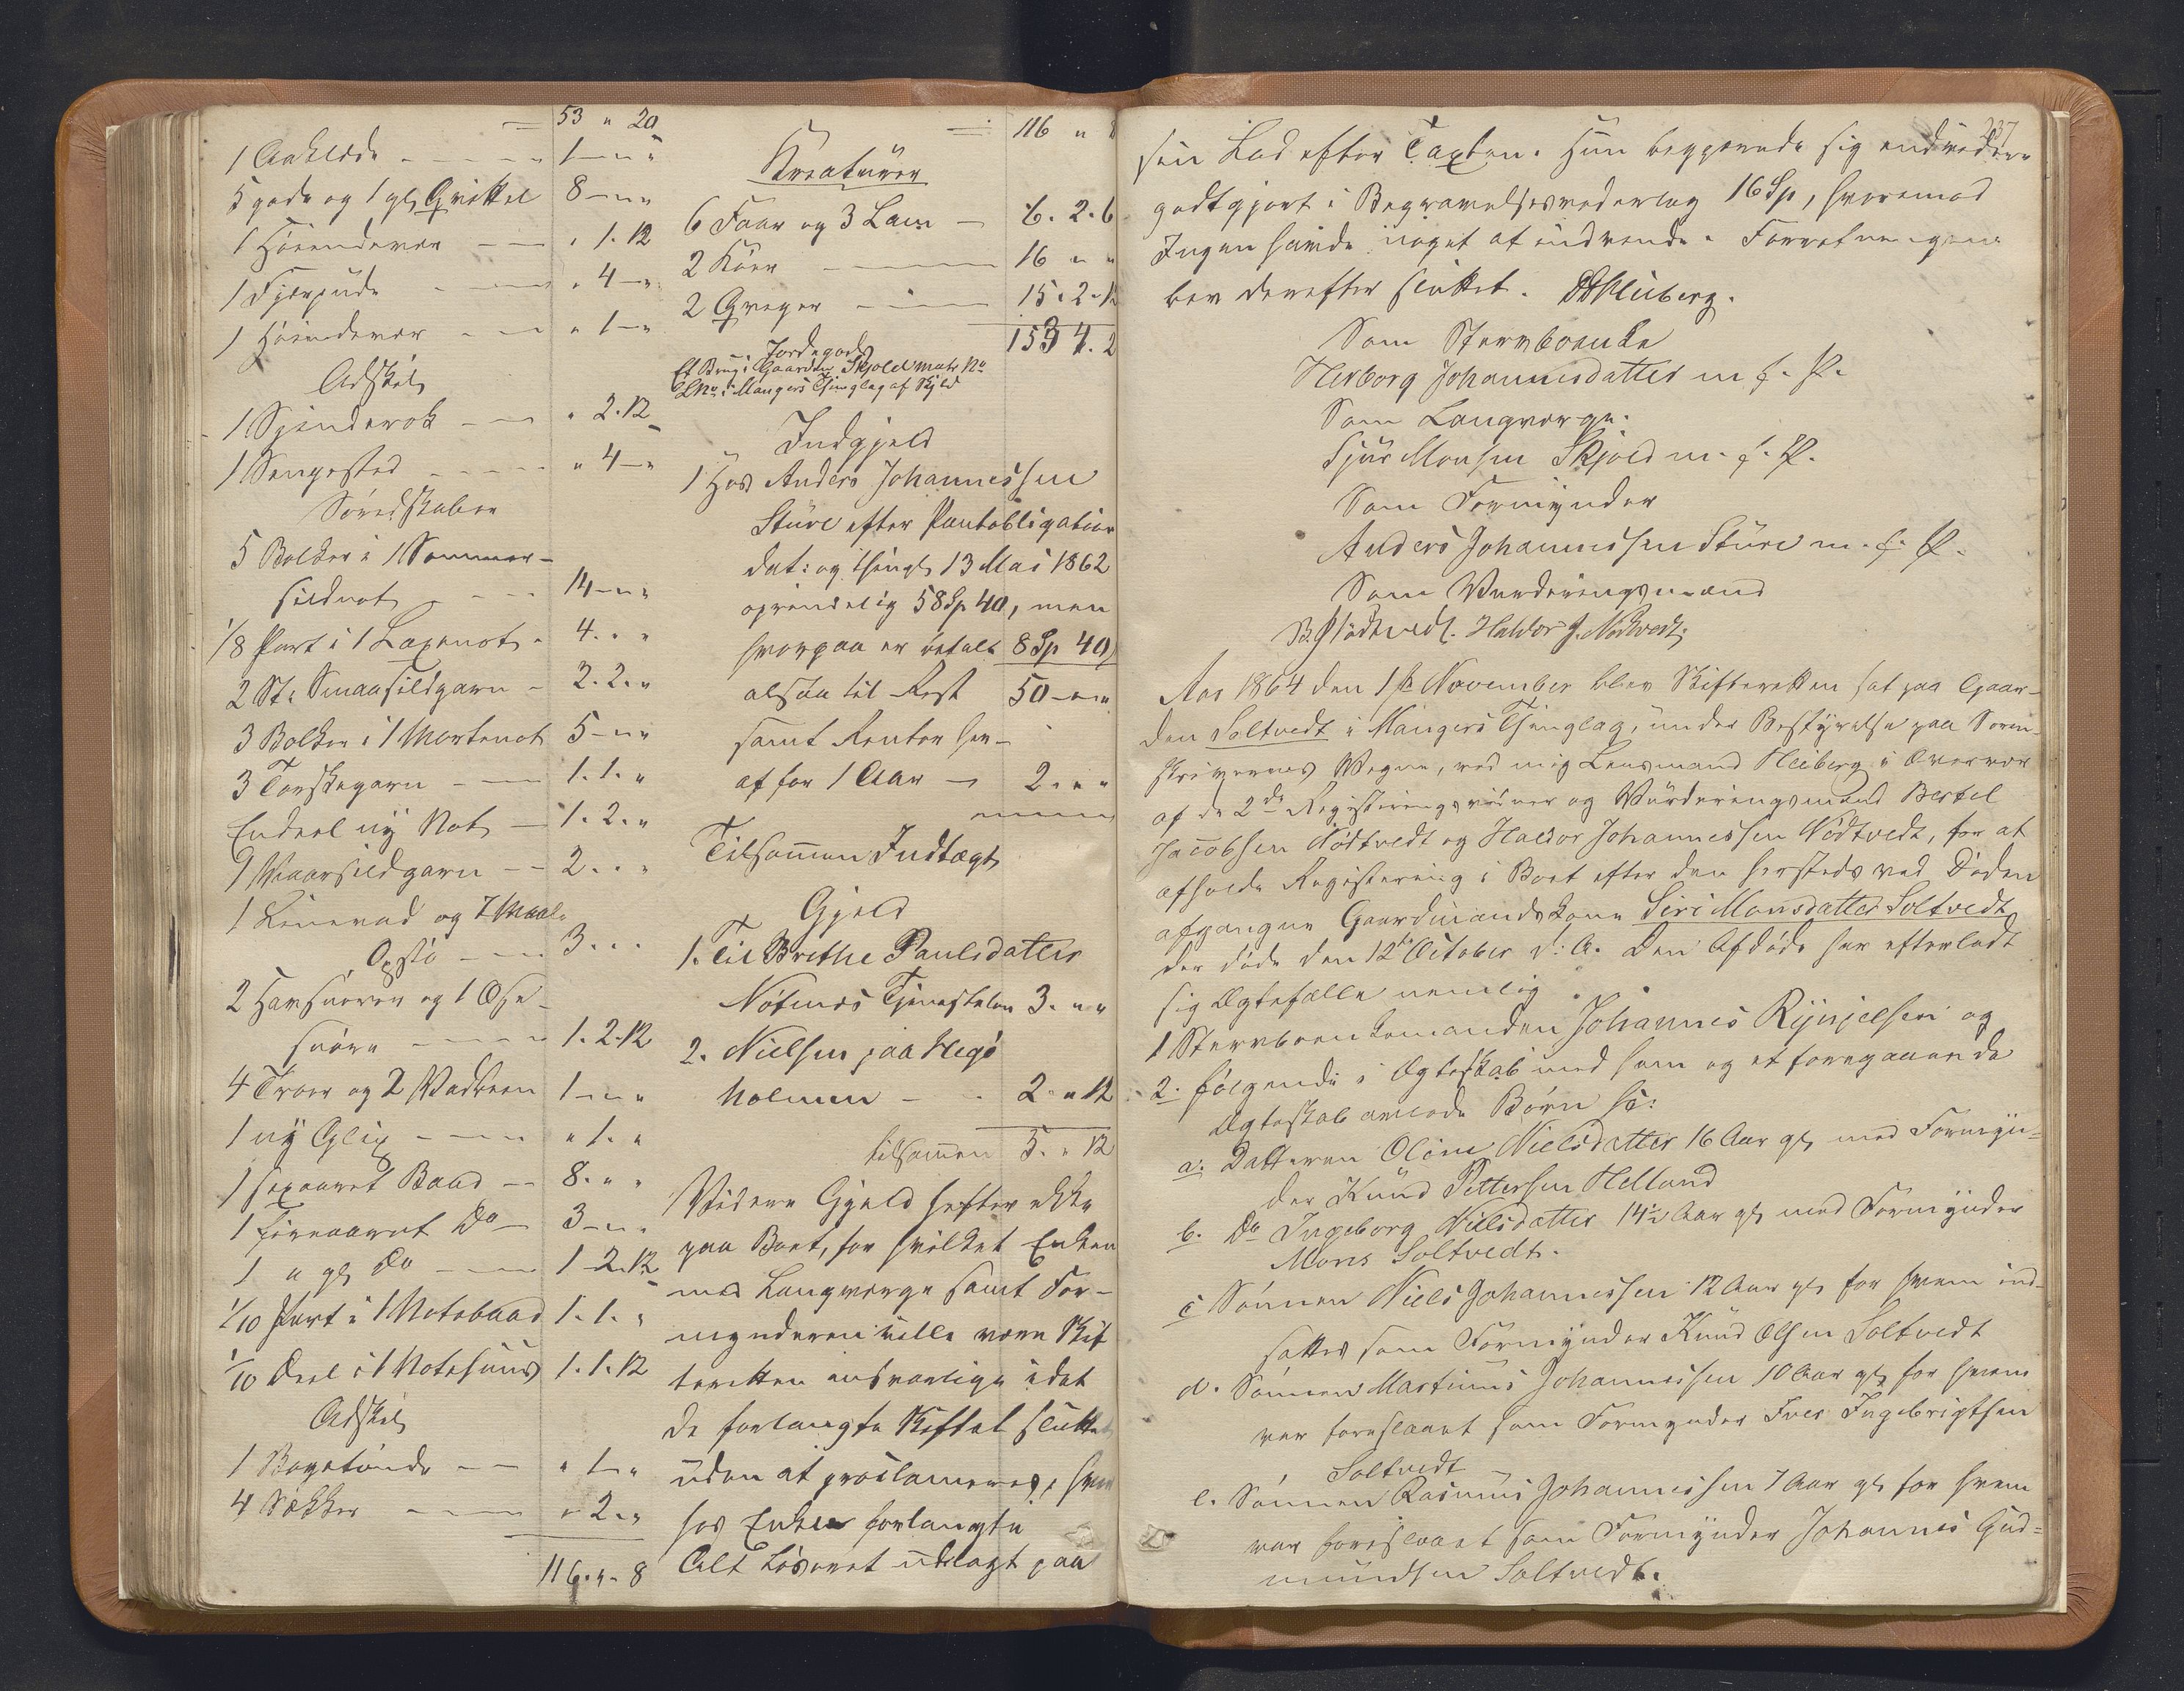 53 " 20
1 Aaklæde 1 " "
5 gode og 1 gl. Grittel 8 " "
1 Høiendevar " 1. 12
1 Fjærpude " 4 "
1 Høiendevar " 1 "
Adskil.
1 Spinderok " 2. 12
1 Sengested " 4 "
Søredskaber
5 Bolker i 1 Sommer-
sildnot 14 " "
1/8 Part i 1 Laxenot 4. " "
2 St. Smaasildgarn 2. 2. "
3 Bolker i 1 Mortenot 5 " "
3 Torskegarn 1. 1. "
Endeel ny Not 1. 2. "
9 Vaarsildgarn 2. " "
1 Linevad og 7 Maal.
Opstø 3. " "
2 Havsnører og 1
snøre 1. 2. 12
4 Troer og 2 Vadbeen 1 " "
1 ny Glip " 1. "
1 sexaaret Baad 8. " "
1 fireaaret Do 3 " "
1 " gl. Do 1 2. 12
1/10 Part i 1 Notebaad 1. 1. "
1/10 Deel i 1 Notehuus 1. 1. 12
Adskil.
1 Bagetønde " 1 "
4 Sækker " 2. "
116. " 8
116 " 8
Kreaturer
6 Faar og 3 Lam 6. 2. 6
2 Køer 16 " "
2 Qveger 15. 2. 12
153 4. 2
Jordegods
Et Brug i Gaarden Skjold matr No
LNo i Mangers Thinglag af Skyld
Indgjeld
1 Hos Anders Johannessen
Sture efter Pantobligation
dat: og thingl. 13 Mai 1862
oprindelig 58 Sp 40, men
hvorpaa er betalt 8 Sp 40,
altsaa til Rest 50 " "
samt Renter her-
af for 1 Aar 2. " "
Tilsammen Indtægt
Gjeld
1. Til Brithe Paulsdatter
Nøtnes Tjenesteløn 3. " "
2. Nielsen paa Hegø
holmen 2 " 12
tilsammen 5. " 12
Videre Gjeld hefter ikke
paa Boet, for hvilket Enken
med Laugværge samt For-
mynderen ville være Skif
teretten ansvarlige idet
de forlangte Skiftet sluttet
uden at proclameres, hvor
hos Enken forlangte
Alt Løsøret udlagt paa
237
sin Lod efter Taxten. Hun begjærede sig endvidere
godtgjort i Begravelsesvederlag 16 Sp, hvorimod
Ingen havde noget at indvende. Forretningen
blev derefter sluttet. Heiberg.
Som Stervboenke
Herborg Johannesdatter m. f. P.
Som Laugværge:
Sjur Monsen Skjold m. f. P.
Som Formynder
Anders Johannessen Sture m. f. P.
Som Vurderingsmænd
B. J. Nødtvedt. Haldor J. Nødtvedt.
Aar 1864 den 1ste November blev Skifteretten sat paa Gaar-
den Soltvedt i Mangers Thinglag, under Bestyrelse paa Soren-
skriverens Vegne, ved mig Lensmand Heiberg i Overvær
af de 2de Registreringsvidner og Vurderingsmænd Bertel
Jacobsen Nødtvedt og Haldor Johannessen Nødtvedt, for at
afholde Registrering i Boet efter den hersteds ved Døden
afgangne Gaardmandskone Siri Monsdatter Soltvedt
der døde den 12te October d: A. Den Afdøde har efterladt
sig Ægtefælle nemlig
1 Stervboenkemanden Johannes Rynjelsen og
2. følgende i Ægteskab med ham og et foregaaende
Ægteskab avlede Børn sc:
a. Datteren Oline Nielsdatter 16 Aar gl. med Formyn-
der Knud Pettersen Helland
b. Do Ingeborg Nielsdatter 14½ Aar gl. med Formynder
Mons Soltvedt.
c Sønnen Niels Johannessen 12 Aar gl. for hvem ind-
sattes som Formynder Knud Olsen Soltvedt
d. Sønnen Martinus Johannessen 10 Aar gl. for hvem
var foreslaaet som Formynder Iver Ingebrigtsen
Soltvedt
e. Sønnen Rasmus Johannessen 7 Aar gl. for hvem
var foreslaaet som Formynder Johannes Gud-
mundsen Soltvedt.